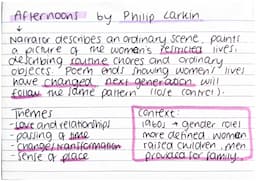 Afternoons by Philip Larkin
Narrator describes an ordinary scene, paints
a picture of the women's restricted lives.
describing routine chores and ordinary
objects. Poem ends showing womens' lives
have changed, next generation will
follow the same pattern (lose control).
Themes
- Love and relationships
- passing of time
- change/transformation
- sense of place
Context:
1960s → gender roles
more defined. Women
raised children, men
provided for family.